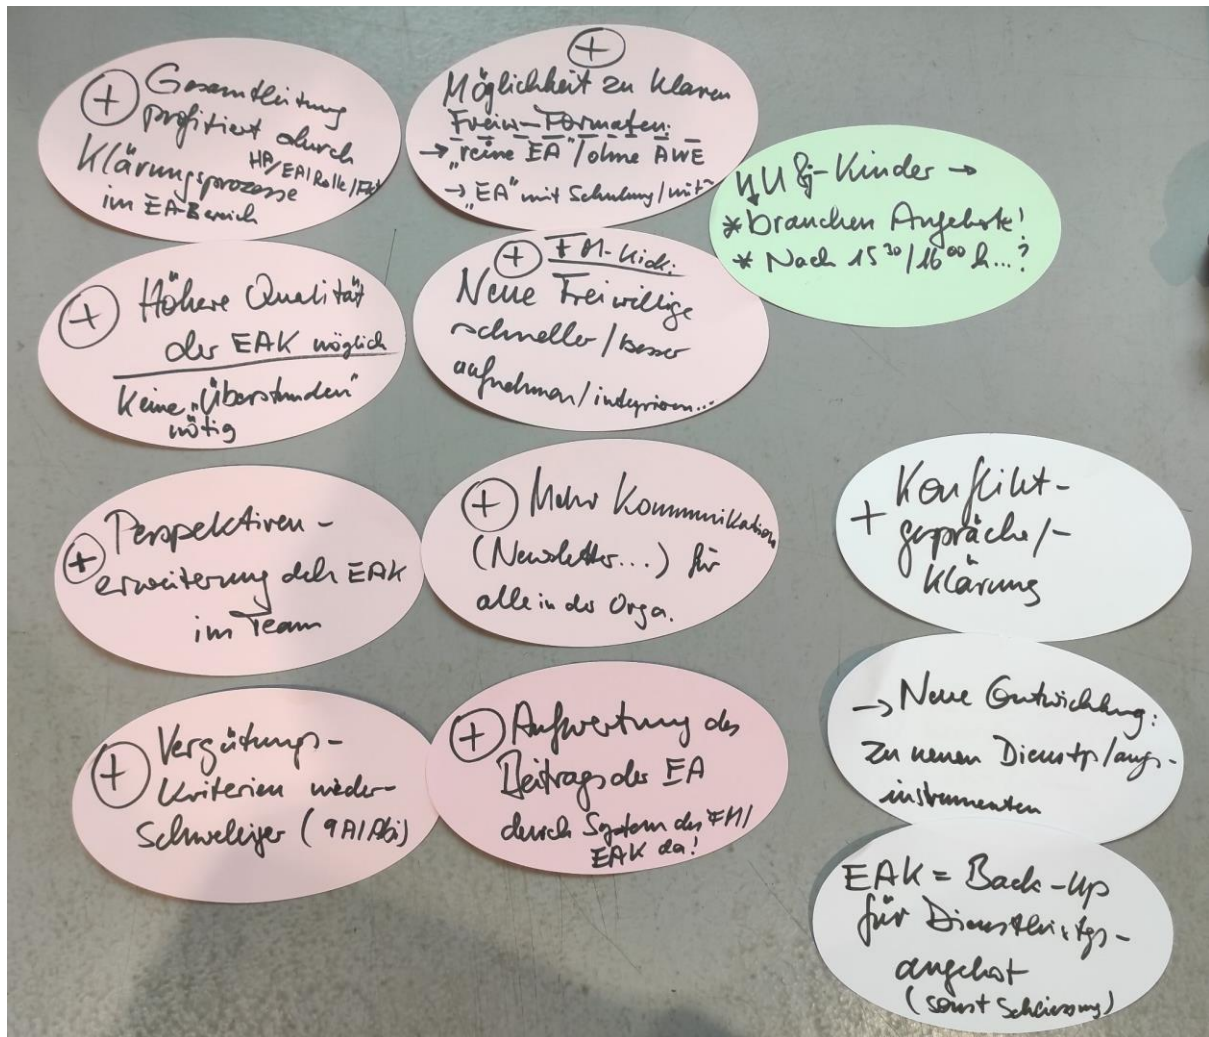 + Gesamtleitung
profitiert durch
Klärungsprozesse
HA/EA/Rolle/
im EA-Bereich
+ Höhere Qualität
der EAK möglich
Keine „Überstunden"
nötig
+ Perspektiven-
erweiterung dch EAK
im Team
+ Vergütungs-
kriterien nieder-
schwelliger (9A/Abi)
+
Möglichkeit zu klaren
Freiw-Formaten:
→ „reine EA"/ohne AWE
→ „EA" mit Schulung/mit
+ FM-Kick:
Neue Freiwillige
schneller/besser
aufnehmen/integrieren...
+ Mehr Kommunikation
(Newsletter...) für
alle in der Orga.
+ Aufwertung des
Beitrags der EA
durch System des FM/
EAK da!
-Kinder →
* brauchen Angebote!
* Nach 15 30/16 00 h...?
+ Konflikt-
gespräche/-
klärung
→ Neue Entwicklung:
zu neuen Dienstplangs-
instrumenten
EAK = Back-Up
für Dienstleistgs-
angebot
(sonst Schliessung)